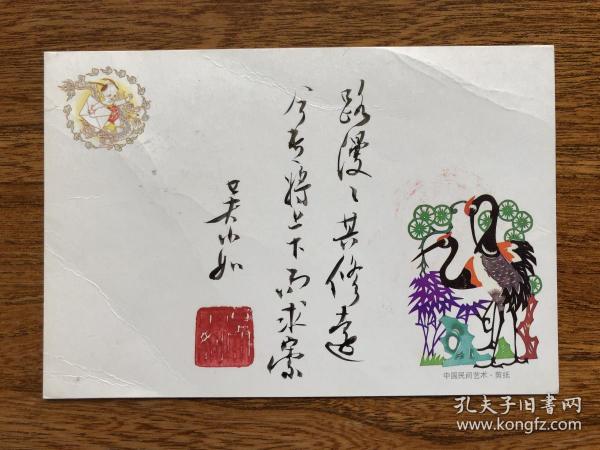 路漫〻其修遠
兮吾將上下而求索
吴小如
中国民间艺术·剪纸
孔夫子旧书网
www.kongfz.com